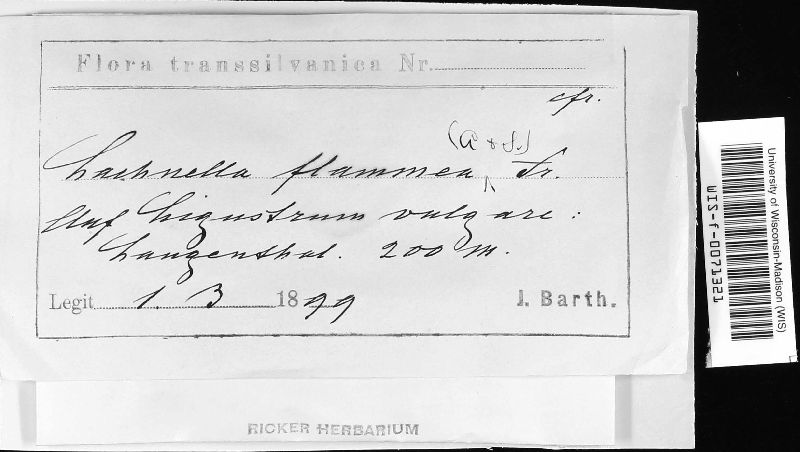 Flora transsilvanica Nr.
cfr.
(A & S.)
Lachnella flammea Fr.
Auf Ligustrum vulgare:
Langenthal. 200 m.
Legit 1. 3 1899 J. Barth.
RICKER HERBARIUM
University of Wisconsin-Madison (WIS)
WIS-f-0071321